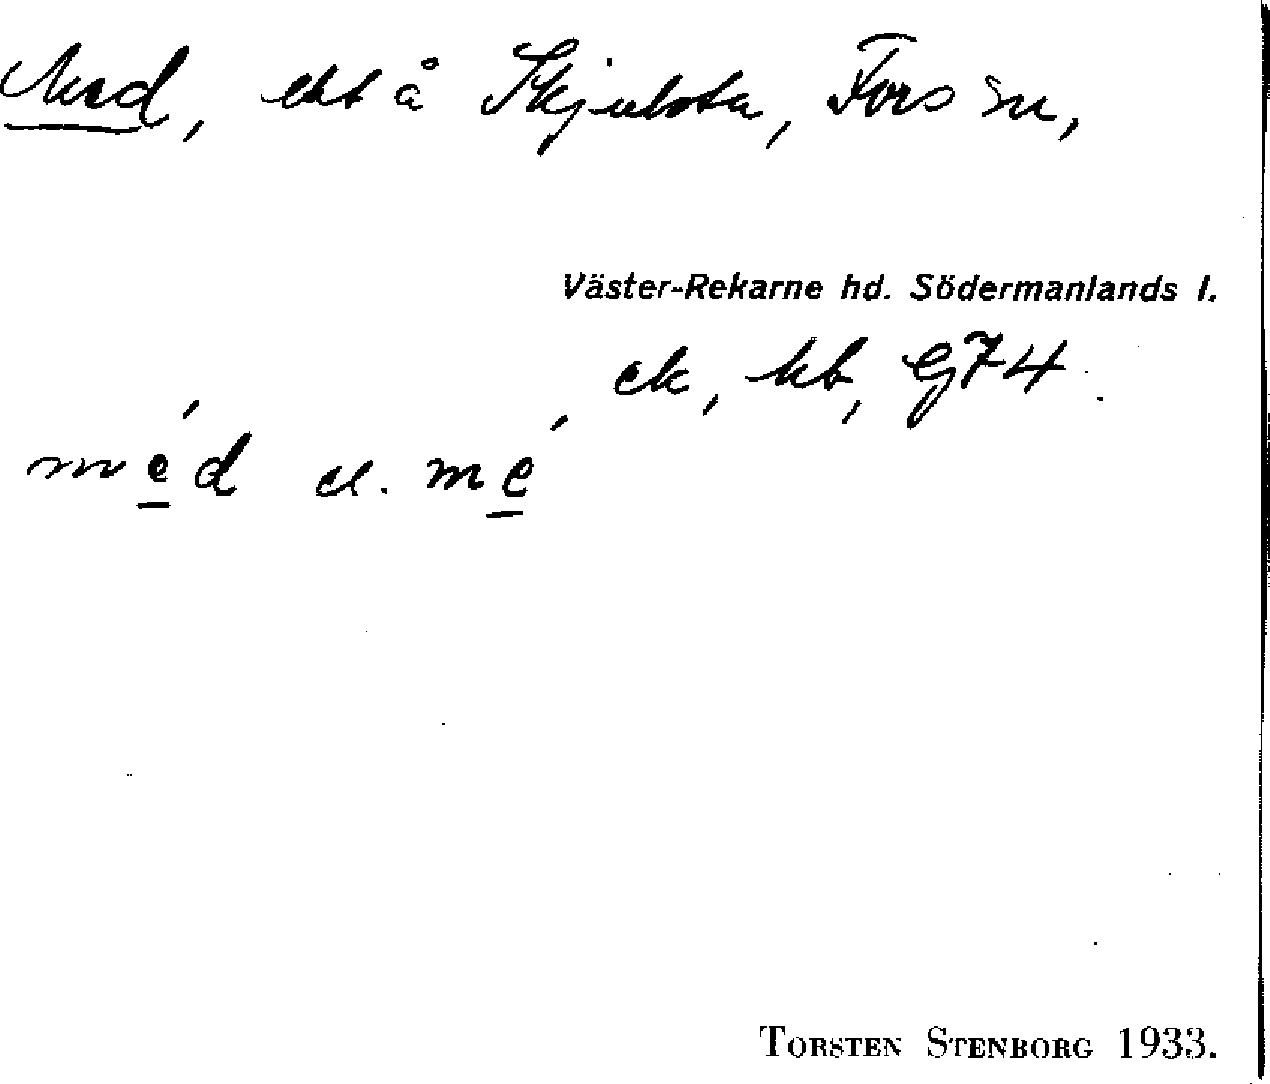 Med, ekt å Skjulsta, Fors sn,
Väster-Rekarne hd. Södermanlands l.
ek, kb, G74.
mèd el. mè
TORSTEN STENBORG 1933.